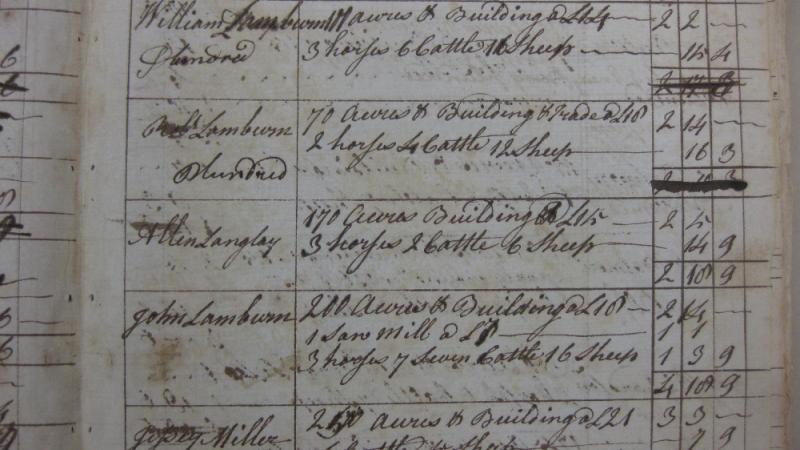 William Lamburn 117 acres & Building a £14 — 2 2 —
Plundred 3 horses 6 Cattle 16 Sheep — 15 4
Robt Lamburn 70 Acres & Building & Trade a £18 2 14 —
2 horses 4 Cattle 12 Sheep — 16 3
Plundred
Allen Langlay 170 Acres Building a £15 2 5
3 horses 2 Cattle 6 Sheep — 14 9
2 18 9
John Lamburn 200 Acres & Building a £18 — 2 14 —
1 Saw Mill a £
3 horses 7 Seven Cattle 16 Sheep 1 3 9
4 18 9
Miller Acres & Building a £21 3 3 —
7 9